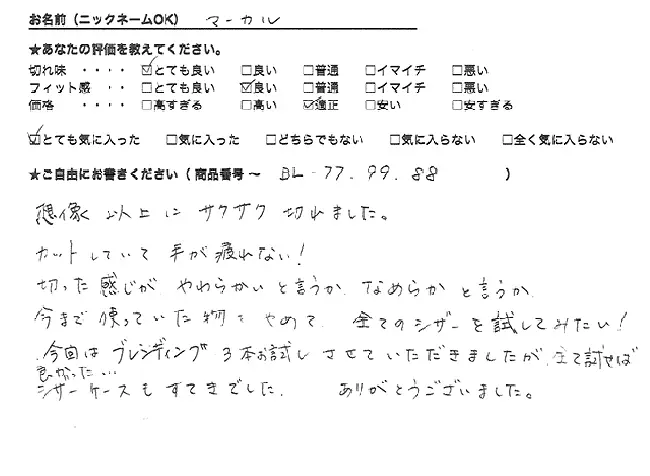 お名前（ニックネームOK） マーカル
★あなたの評価を教えてください。
切れ味 ・・・・ ☑とても良い □良い □普通 □イマイチ □悪い
フィット感 ・・ □とても良い ☑良い □普通 □イマイチ □悪い
価格 ・・・・ □高すぎる □高い ☑適正 □安い □安すぎる
☑とても気に入った □気に入った □どちらでもない □気に入らない □全く気に入らない
★ご自由にお書きください（商品番号〜 BL-77.99.88 ）
想像以上にサクサク切れました。
カットしていて手が疲れない！
切った感じがやわらかいと言うか.なめらかと言うか.
今まで使っていた物をやめて全てのシザーを試してみたい！
今回はブレンディング3本お試しさせていただきましたが、全て試せば
良かった…
シザーケースもすてきでした. ありがとうございました。